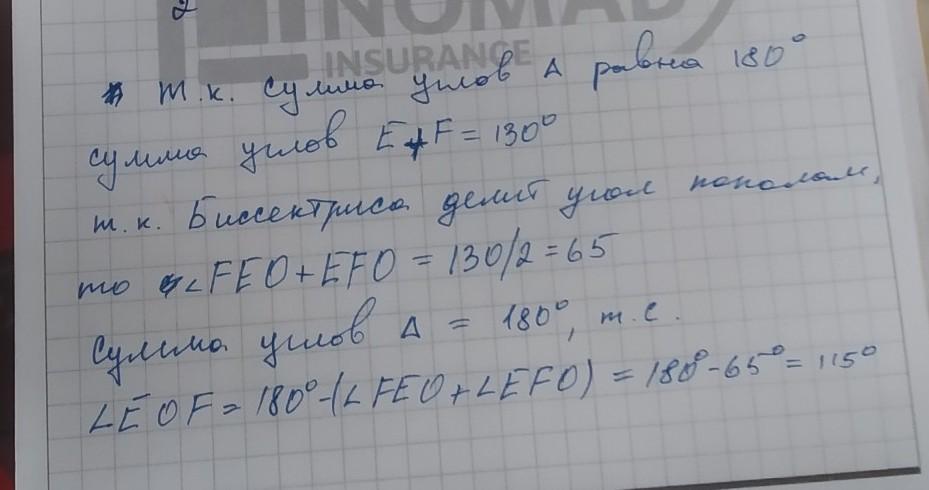 2
NOMAD
INSURANCE
т.к. сумма углов Δ равна 180°
сумма углов E+F = 130°
т.к. Биссектриса делит угол пополам,
то ∠FEO + EFO = 130/2 = 65
Сумма углов Δ = 180°, т.е.
∠EOF = 180° - (∠FEO + ∠EFO) = 180° - 65° = 115°